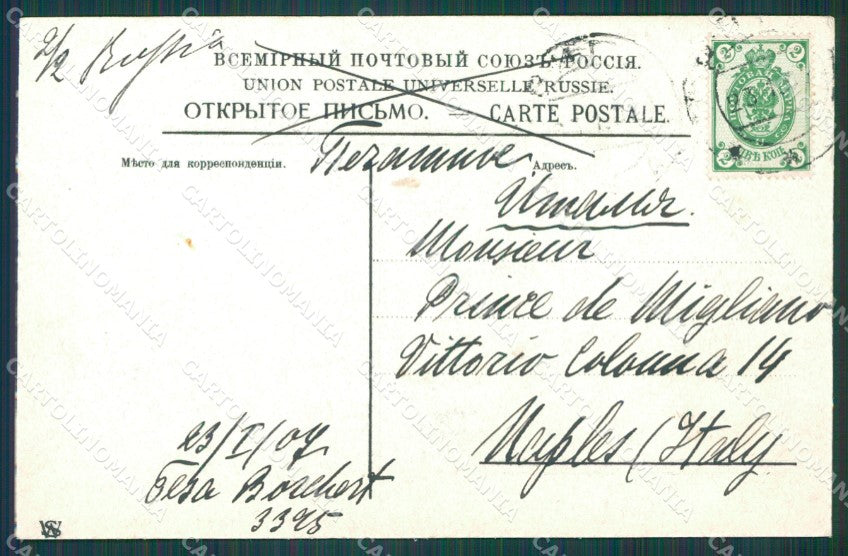 2/2 Russia
ВСЕМІРНЫЙ ПОЧТОВЫЙ СОЮЗЪ РОССІЯ.
UNION POSTALE UNIVERSELLE RUSSIE.
ОТКРЫТОЕ ПИСЬМО. — CARTE POSTALE.
Мѣсто для корреспонденціи.
Печатное
Адресъ.
Италія.
Monsieur
Prince de Migliano
Vittorio Colonna 14
Naples (Italy
23/I/07
Boschert
3395
2 2
ДВѢ КОП.
2 2
CARTOLINOMANIA